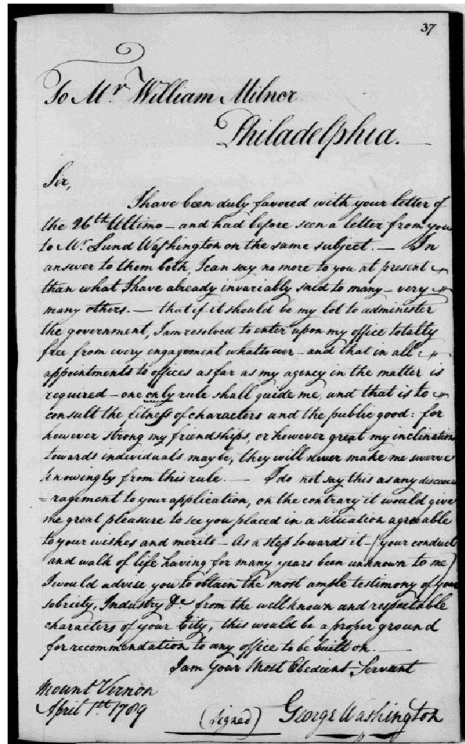 37
To Mr. William Milnor
Philadelphia.
Sir,
I have been duly favored with your letter of
the 26th Ultimo — and had before seen a letter from you
to Mr. Lund Washington on the same subject. — In
answer to them both, I can say no more to you at present
than what I have already invariably said to many — very
many others. — that if it should be my lot to administer
the government, I am resolved to enter upon my office totally
free from every engagement whatsoever — and that in all
appointments to offices as far as my agency in the matter is
required — one only rule shall guide me, and that is to
consult the fitness of characters and the public good: for
however strong my friendships, or however great my inclinations
towards individuals may be, they will never make me swerve
knowingly from this rule. — I do not say this as any discou
=ragement to your application, on the contrary it would give
me great pleasure to see you placed in a situation agreeable
to your wishes and merits — As a step towards it — (your conduct
and walk of life having for many years been unknown to me)
I would advise you to obtain the most ample testimony of your
sobriety, Industry &c from the well known and respectable
characters of your City, this would be a proper ground
for recommendation to any office to be built on.
I am Your Most Obedient Servant
Mount Vernon
April 1st 1789
(signed) George Washington